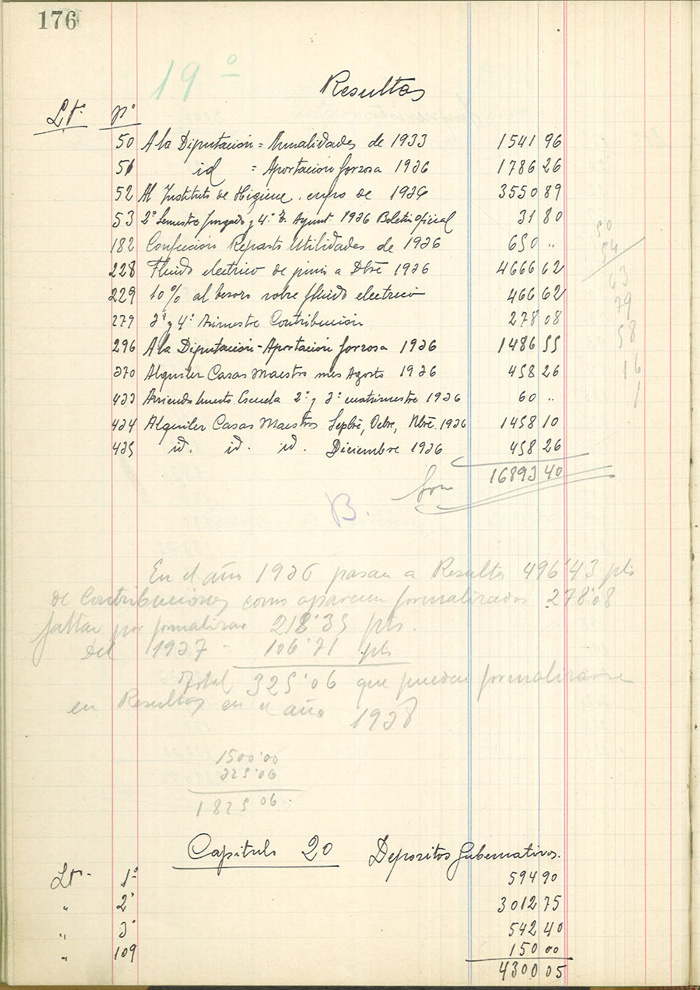 176
19º
Resultas
Lº. nº
50 A la Diputación = Anualidades de 1933 1541 96
51 id = Aportacion forzosa 1936 1786 26
52 Al Instituto de Higiene . cupo de 1936 3550 89
53 2º Semestre Juzgado y 4º T. Ayunt 1936 Boletin oficial 31 80
182 Confección Reparto Utilidades de 1936 650 ..
228 Fluido electrico de junio a Dbre 1936 4666 62
229 10% al tesoro sobre fluido electrico 466 62
279 3º y 4º trimestre Contribución 278 08
296 A la Diputación - Aportacion forzosa 1936 1486 55
370 Alquiler Casas Maestro mes Agosto 1936 458 26
433 Arriendo Escuela 2º y 3º cuatrimestre 1936 60 ..
434 Alquiler Casas Maestros Septbre, Octre, Nbre, 1936 1458 10
435 id. id. id. Diciembre 1936 458 26
16893 40
B.
50
54
63
79
58
16
1
En el año 1936 pasan a Resultas 496'43 pts
de Contribuciones como aparecen formalizadas 278'08
faltan por formalizar 218'35 pts.
del 1937 - 106'71 pts
Total 325'06 que pueden formalizarse
en Resultas en el año 1938
1500'00
325'06
1825 06.
Capitulo 20 Depositos Gubernativos.
Lº. 1º 594 90
" 2º 3012 75
" 3º 542 40
" 109 150 00
4300 05